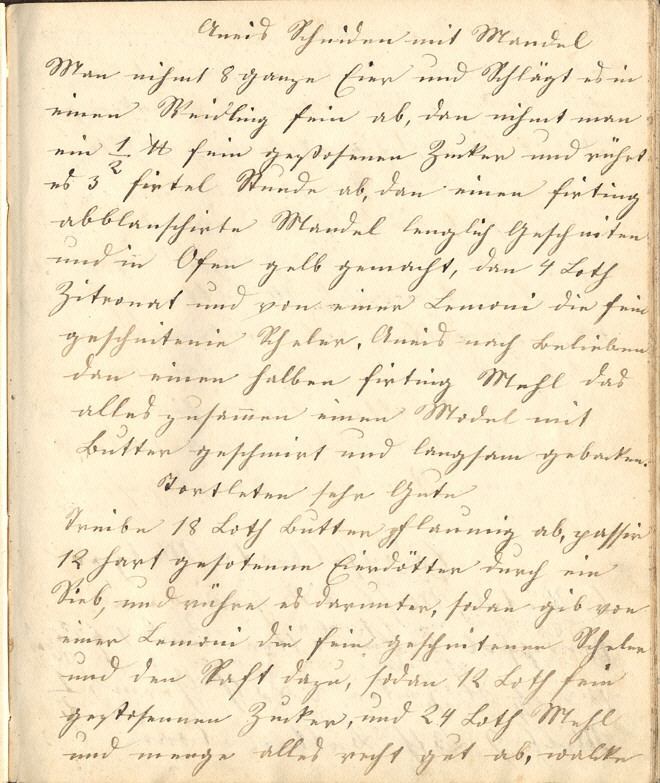 Aneis Schniden mit Mandel
Man nihmt 8 ganze Eier und Schlägt es in
einen Weidling fein ab, dan nihmt man
ein 1/2 ℔ fein gestosenen Zucker und rührt
es 3 firtel Stunde ab, dan einen firting
abblanschirte Mandel lenglich Geschniten
und in Ofen gelb gemacht, dan 4 Loth
Zitronat und von einer Lemoni die fein
geschnitenie Scheler, Aneis nach Belieben
dan einen halben firting Mehl das
alles zusam̅en einen Model mit
Butter geschmirt und langsam gebacken.
Tortleten sehr Gute
Treibe 18 Loth Butter pflaumig ab, passir
12 hart gesotenne Eierdötter durch ein
Sieb, und rühre es darunter, sodan gib von
einer Lemoni die fein geschnitenen Scheler
und den Saft dazu, sodan 12 Loth fein
gestosennen Zucker, und 24 Loth Mehl
und menge alles recht gut ab, walcke